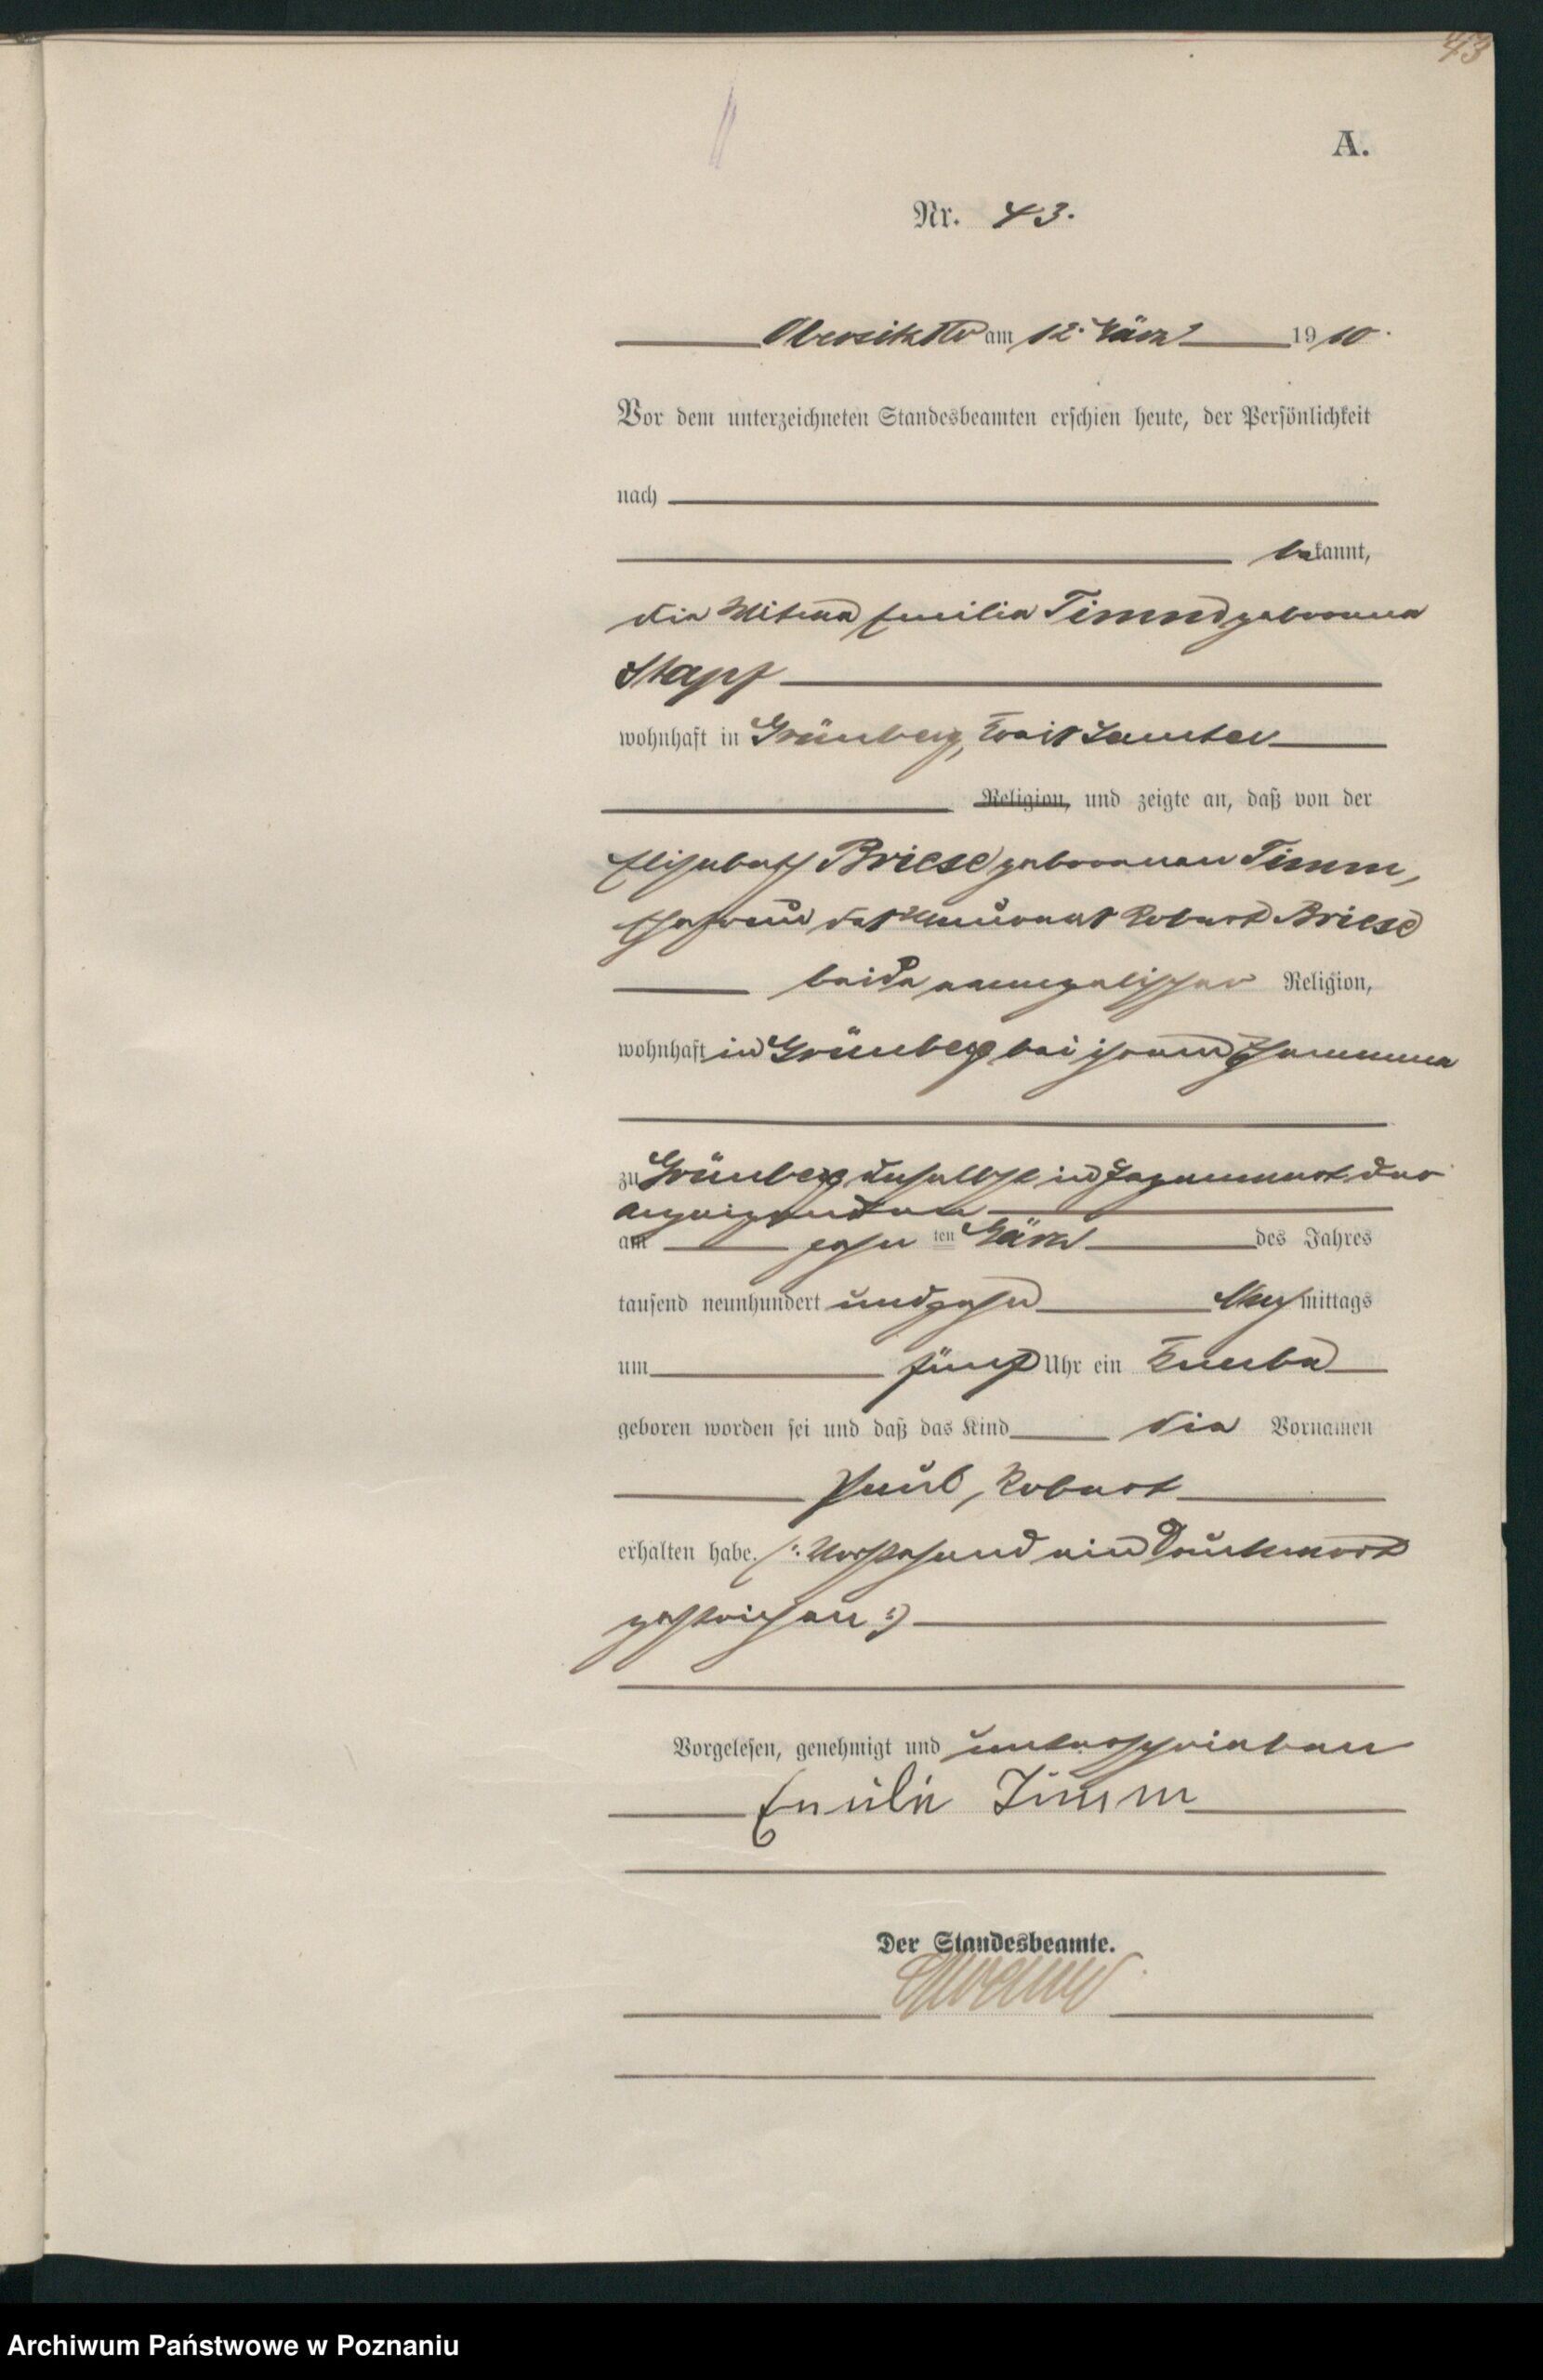 43
A.
Nr. 43.
Obersitzko am 12. März 1910.
Vor dem unterzeichneten Standesbeamten erschien heute, der Persönlichkeit
nach
bekannt,
die Witwe Emilie Timm geborene
Stapf
wohnhaft in Grünberg, Kreis Samter
Religion, und zeigte an, daß von der
Elisabeth Briese geborenen Timm,
Ehefrau des Maurers Robert Briese
beide evangelischer Religion,
wohnhaft in Grünberg bei ihrem Ehemanne
zu Grünberg daselbst in Gegenwart der
Anzeigenden
am zehn ten März des Jahres
tausend neunhundert und zehn Nachmittags
um fünf Uhr ein Knabe
geboren worden sei und daß das Kind die Vornamen
Paul, Robert
erhalten habe. (: Vorstehend ein Druckwort
gestrichen :)
Vorgelesen, genehmigt und unterschrieben
Emilie Timm
Der Standesbeamte.
Archiwum Państwowe w Poznaniu